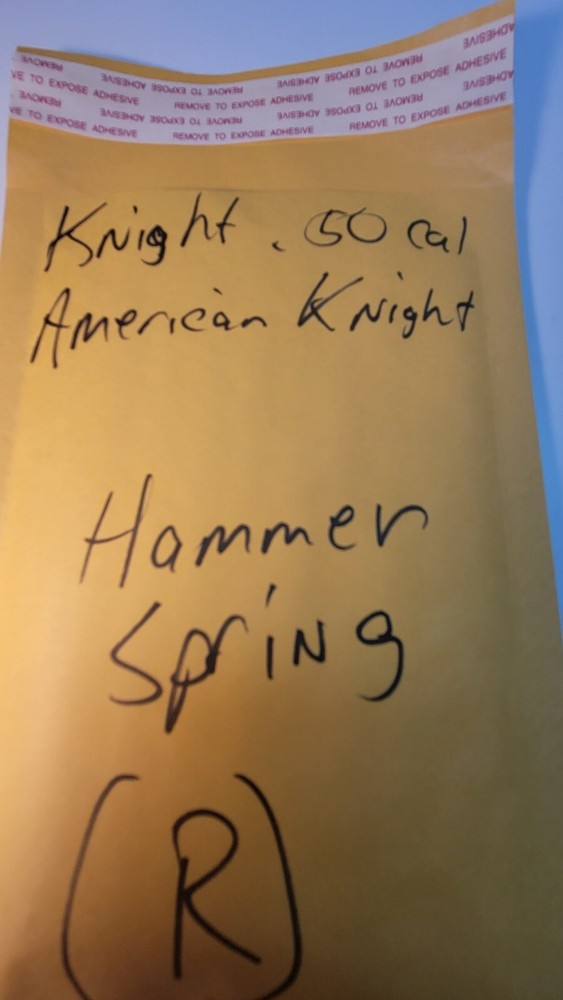 REMOVE REMOVE TO EXPOSE ADHESIVE REMOVE TO EXPOSE ADHESIVE
VE TO EXPOSE ADHESIVE REMOVE TO EXPOSE ADHESIVE REMOVE TO EXPOSE ADHESIVE
REMOVE REMOVE TO EXPOSE ADHESIVE REMOVE TO EXPOSE ADHESIVE
VE TO EXPOSE ADHESIVE REMOVE TO EXPOSE ADHESIVE REMOVE TO EXPOSE ADHESIVE
Knight .50 Cal
American Knight
Hammer
Spring
(R)